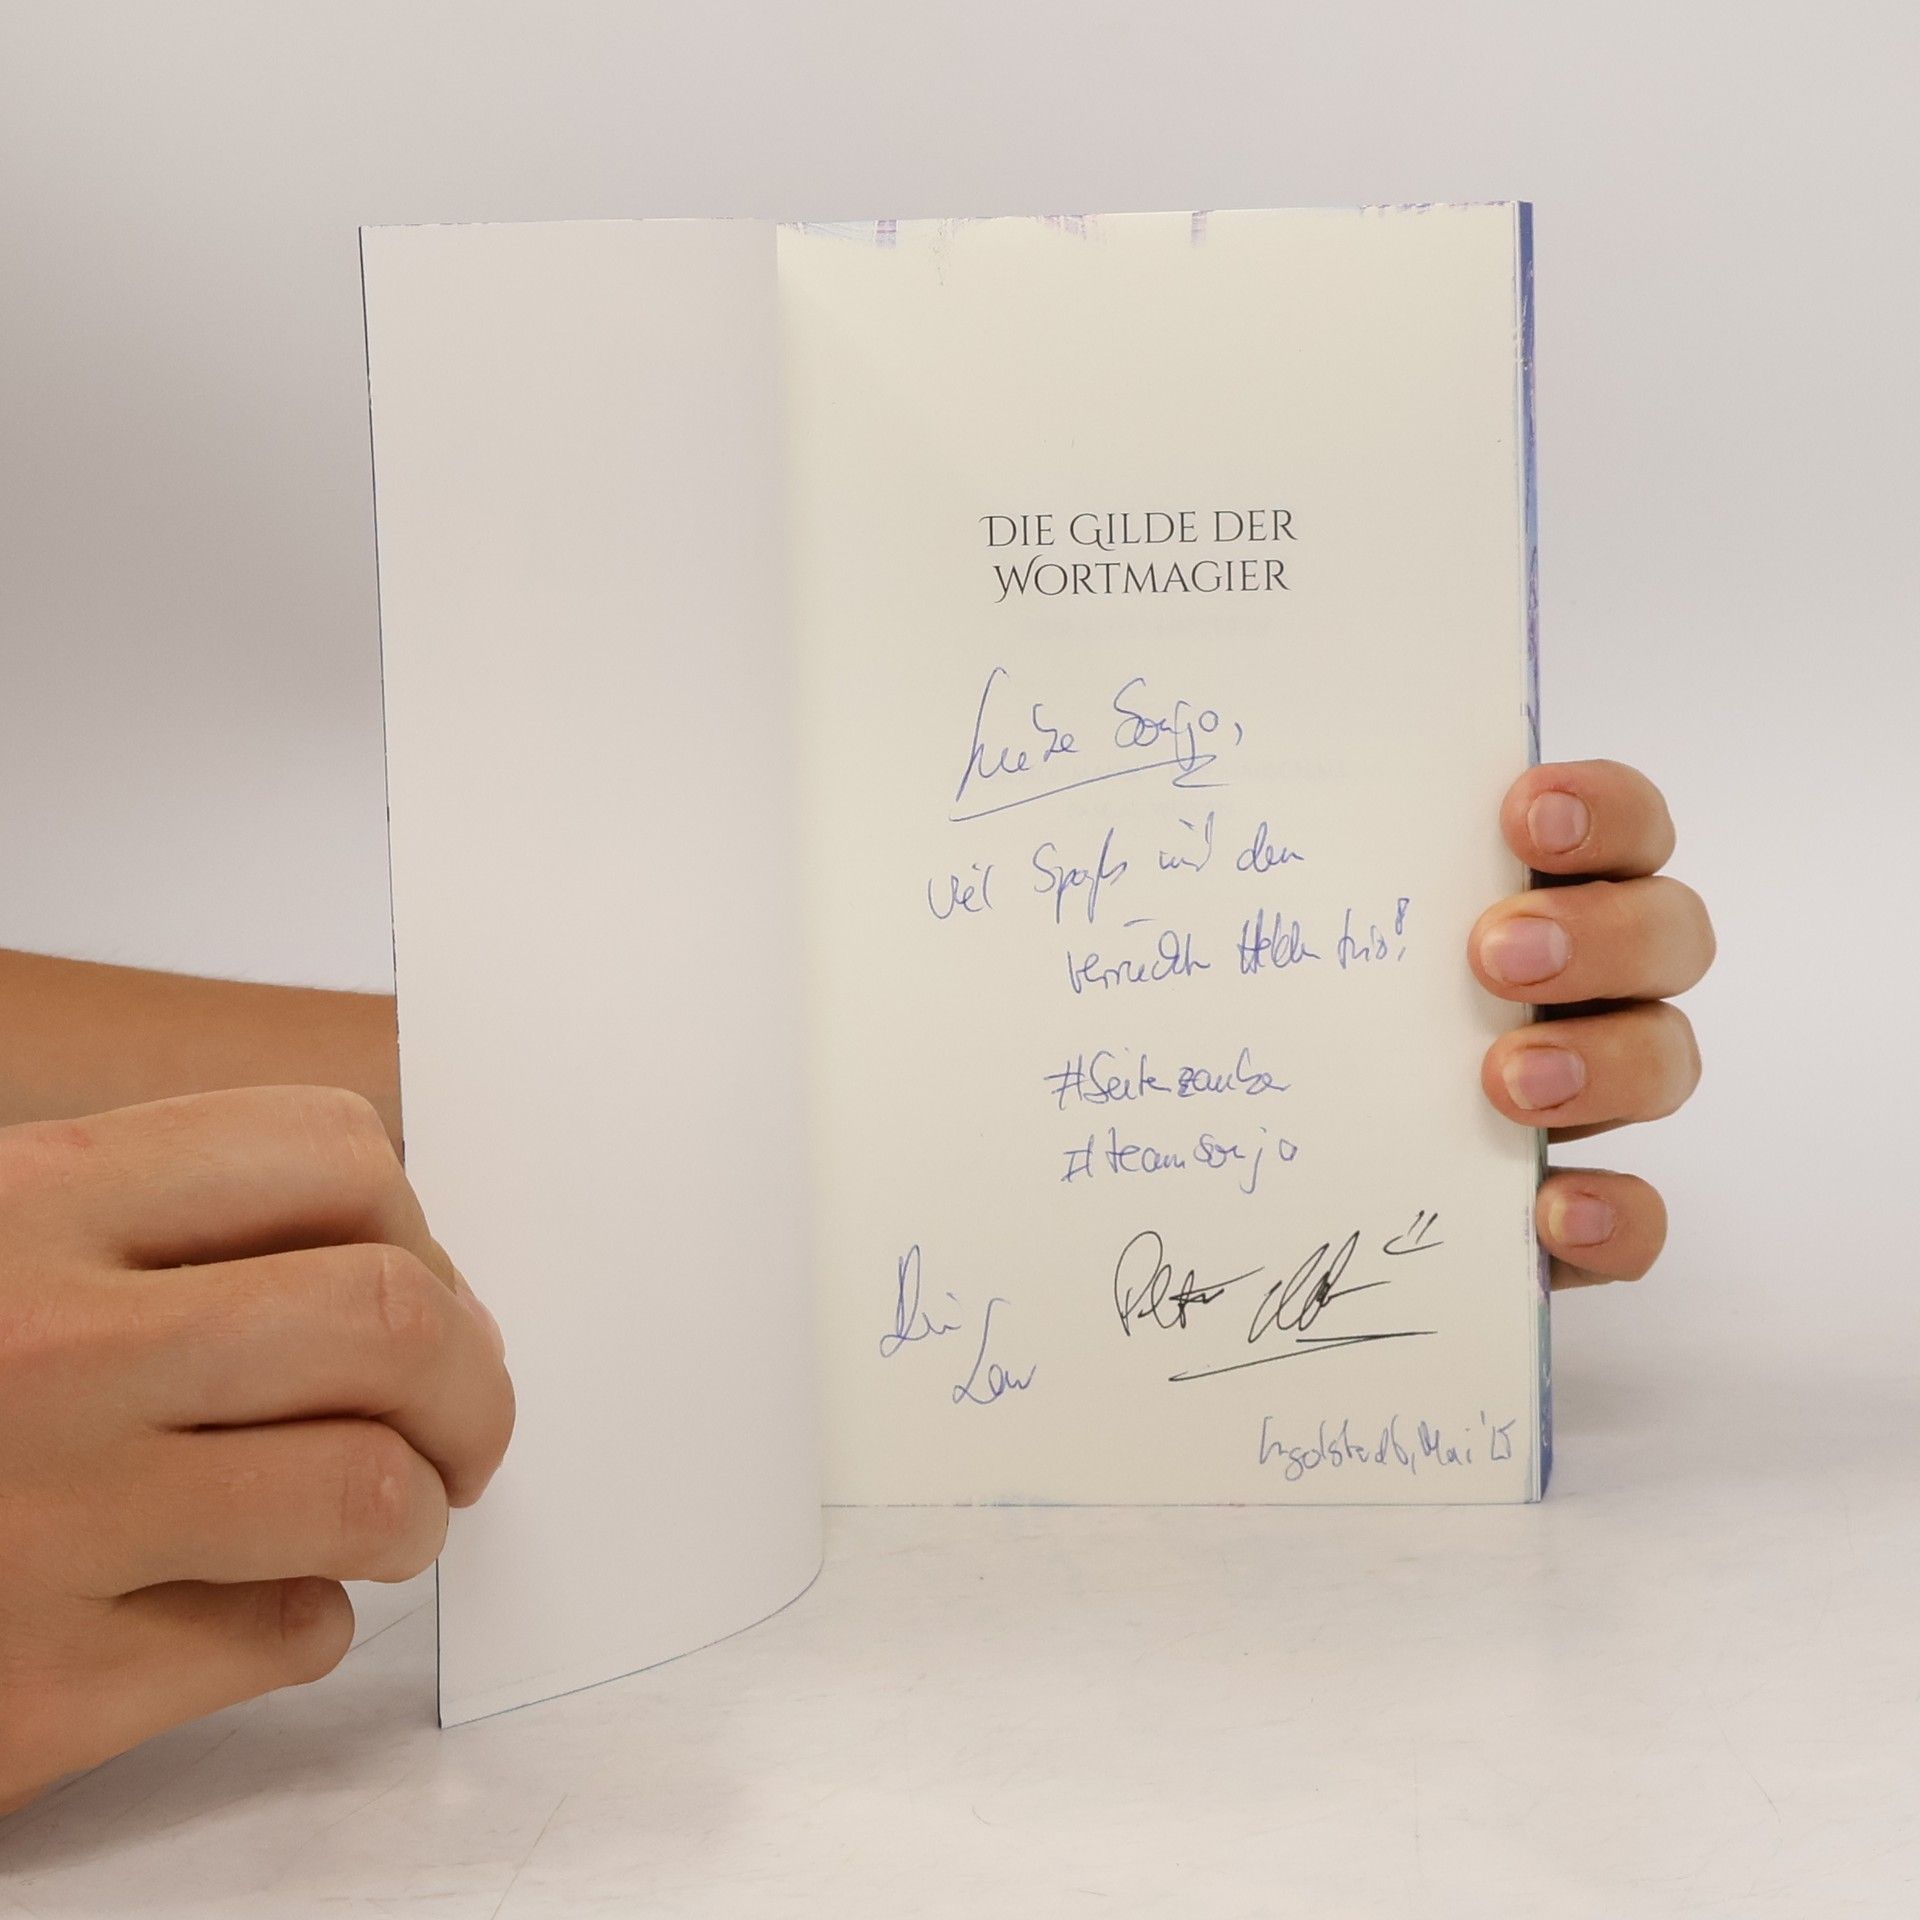 DIE GILDE DER
WORTMAGIER
Liebe Sonja,
Viel Spaß mit dem
verrückten Heldentrio!
#Seitenzauber
#teamsonja
Dein
Peter
Ingolstadt, Mai '25